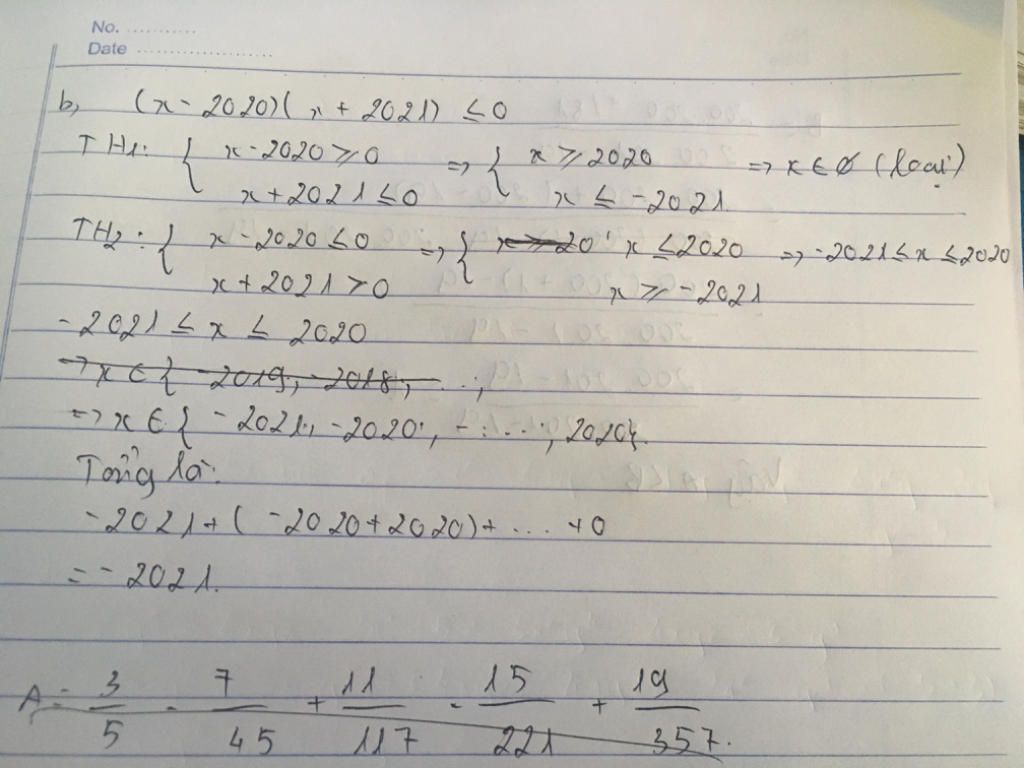 No. ...........
Date ......................
b, (x - 2020)(x + 2021) ≤ 0
TH1: { x - 2020 ≥ 0 => { x ≥ 2020 => x ∈ ∅ (loại)
x + 2021 ≤ 0 x ≤ -2021
TH2: { x - 2020 ≤ 0 => { x ≥ 20 x ≤ 2020 => -2021 ≤ x ≤ 2020
x + 2021 ≥ 0 x ≥ -2021
-2021 ≤ x ≤ 2020
=> x ∈ { -2019, -2018, ...,
=> x ∈ { -2021, -2020, ......, 2020}.
Tổng là:
-2021 + (-2020 + 2020) + ... + 0
= -2021.
A = 3/5 - 7/45 + 11/117 - 15/221 + 19/357.